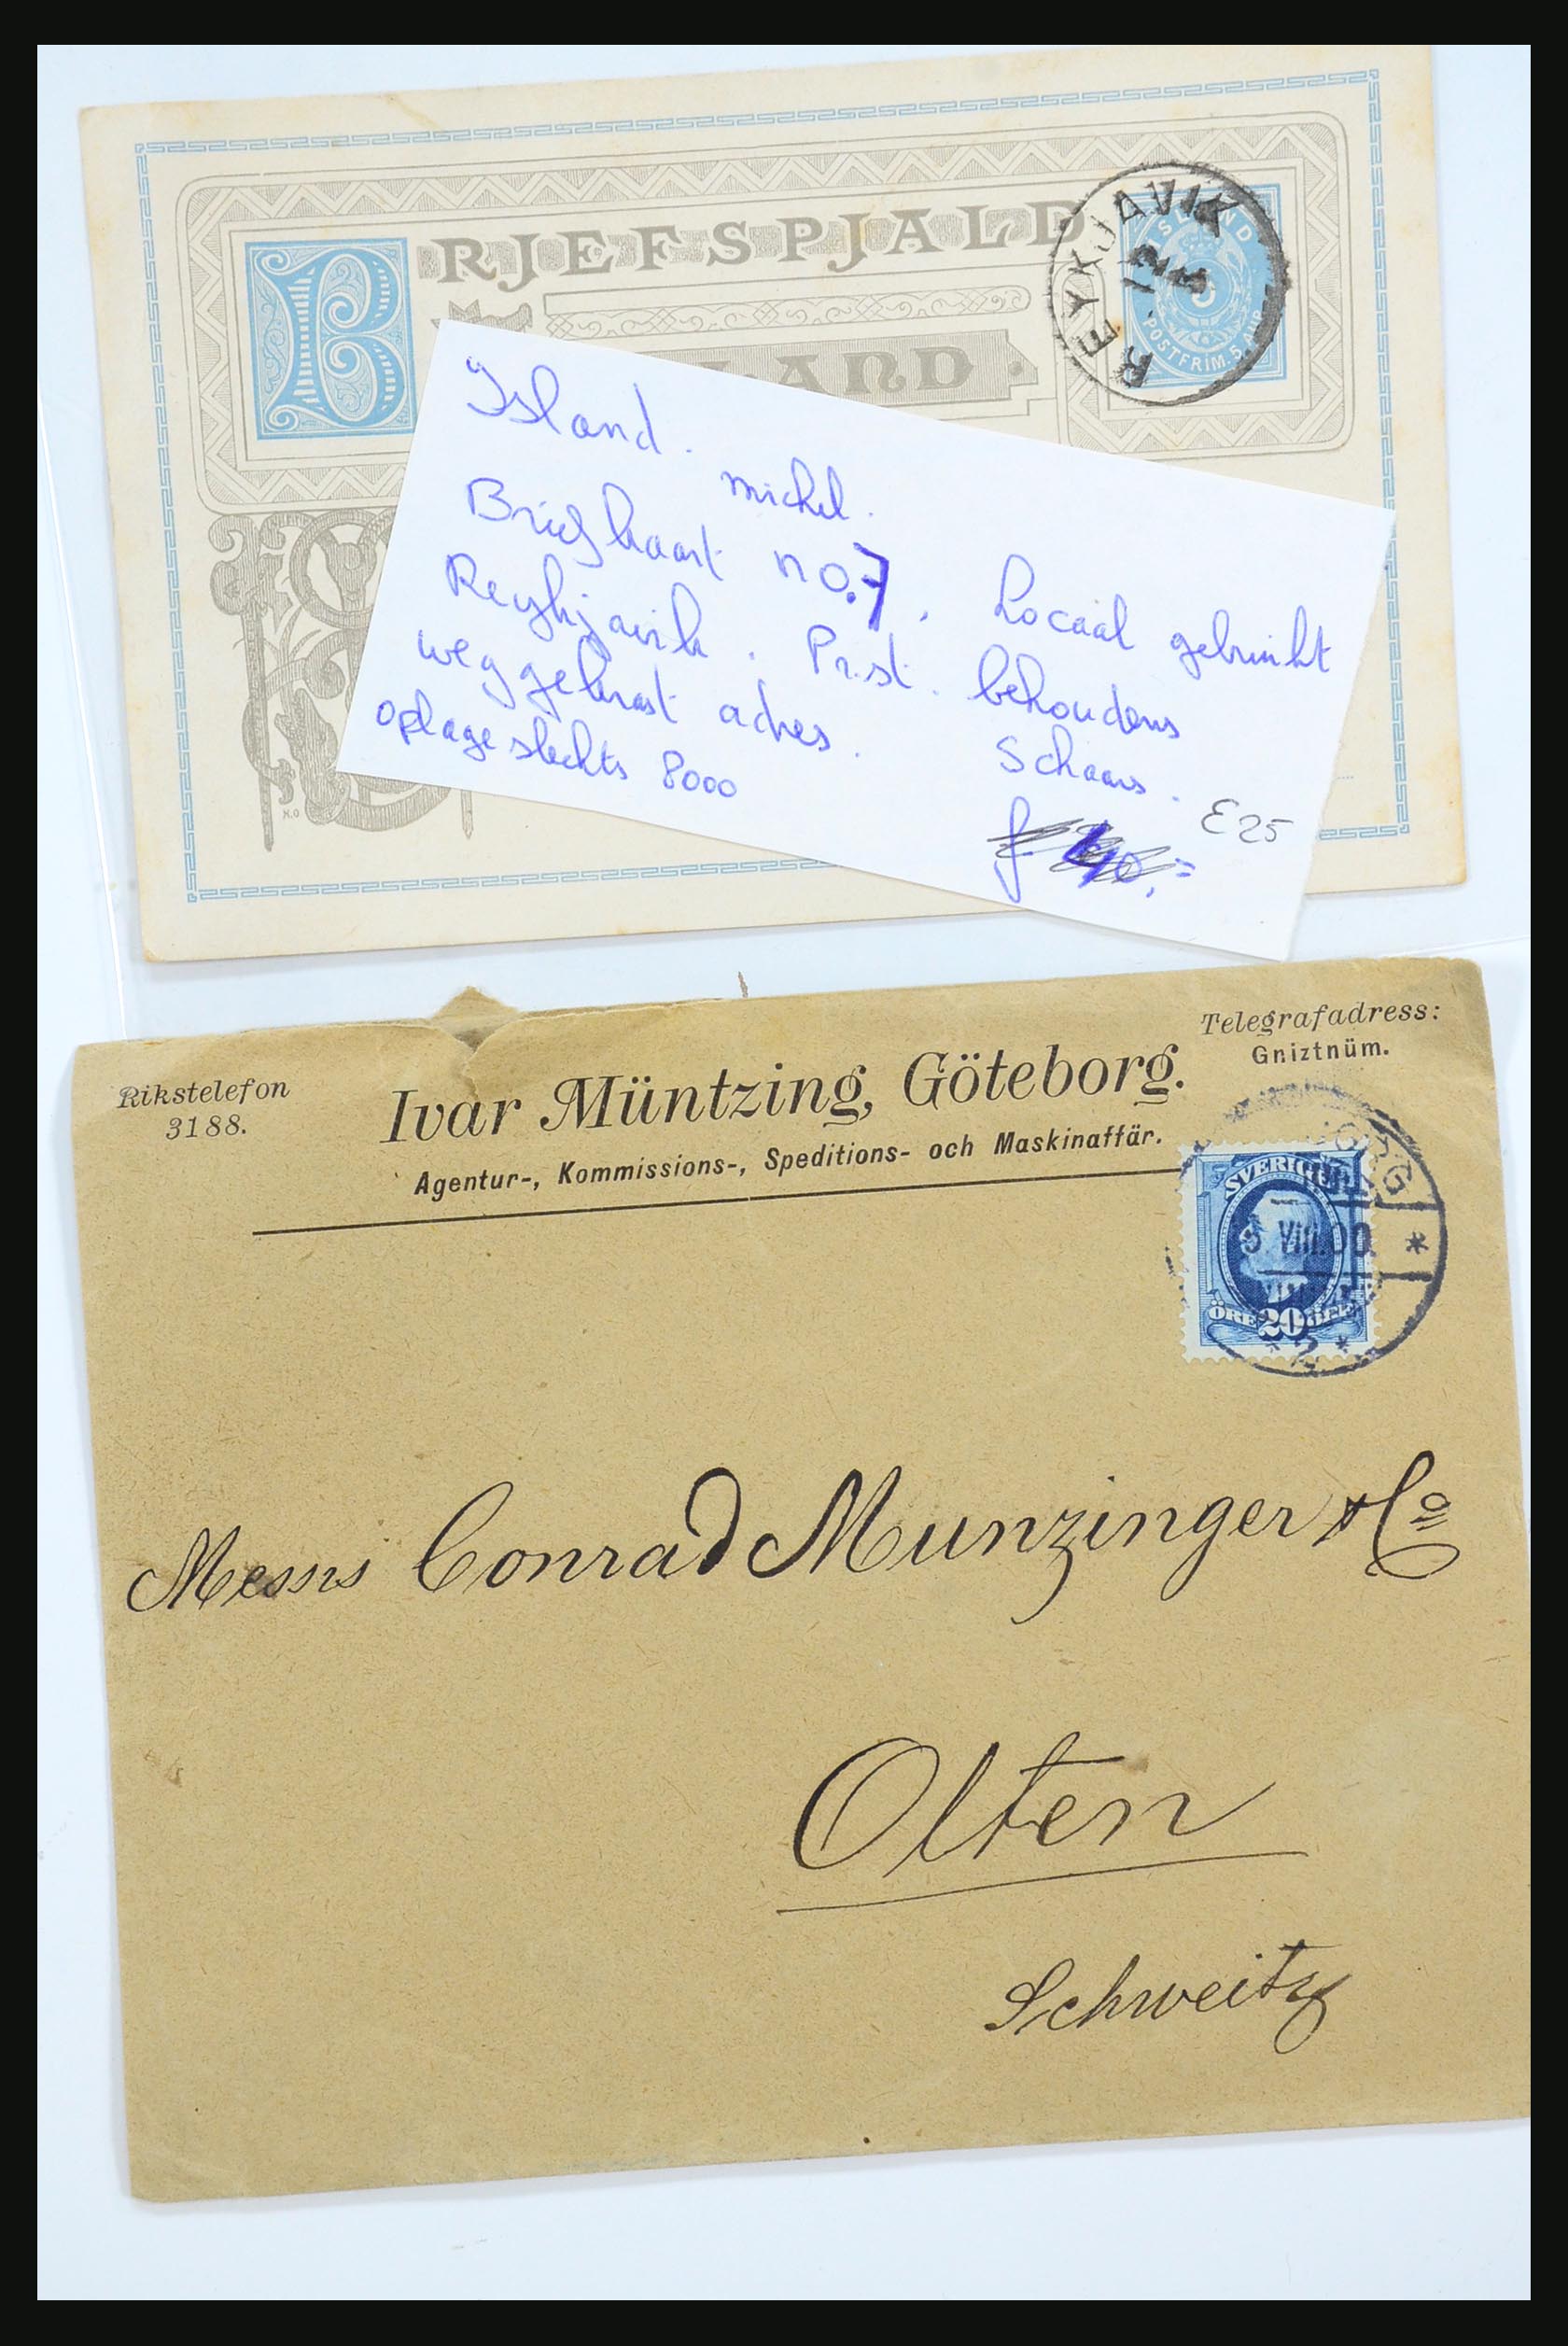 BRJEFSPJALD
REYKJAVIK
12
ISLAND
5
POSTFRIM. 5 AUR
LAND
Island. michel.
Briefkaart no. 7. Locaal gebruikt
Reykjavik. Pr.st. behoudens
weggekrast adres. Schaars.
oplage slechts 8000
f 40,=
E25
H.O
Rikstelefon
3188.
Telegrafadress:
Gniztnüm.
Ivar Müntzing, Göteborg.
Agentur-, Kommissions-, Speditions- och Maskinaffär.
SVERIGE
VIII.00
ÖRE 20 ÖRE
* 2 *
Messrs Conrad Munzinger & Co
Olten
Schweitz